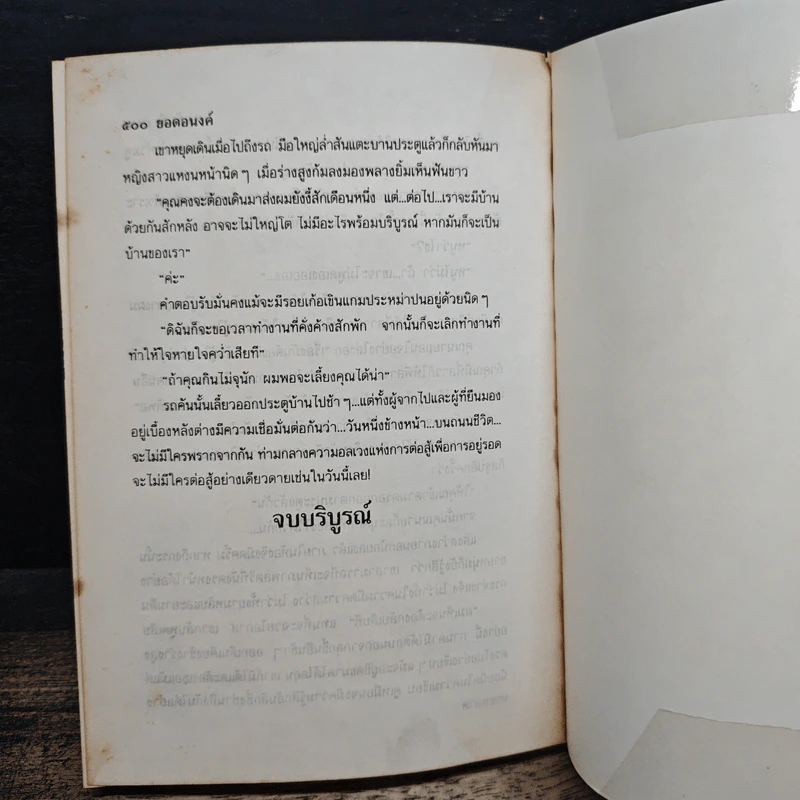 ๕๐๐ ยอดอนงค์
เขาหยุดเดินเมื่อไปถึงรถ มือใหญ่ล่ำสันแตะบานประตูแล้วก็กลับหันมา
หญิงสาวแหงนหน้านิดๆ เมื่อร่างสูงก้มลงมองพลางยิ้มเห็นฟันขาว
“คุณคงจะต้องเดินมาส่งผมยังงี้สักเดือนหนึ่ง แต่...ต่อไป...เราจะมีบ้าน
ด้วยกันสักหลัง อาจจะไม่ใหญ่โต ไม่มีอะไรพร้อมบริบูรณ์ หากมันก็จะเป็น
บ้านของเรา”
“ค่ะ”
คำตอบรับมั่นคงแม้จะมีรอยเก้อเขินแกมประหม่าปนอยู่ด้วยนิดๆ
“ดิฉันก็จะขอเวลาทำงานที่คั่งค้างสักพัก จากนั้นก็จะเลิกทำงานที่
ทำให้ใจหายใจคว่ำเสียที”
“ถ้าคุณกินไม่จุนัก ผมพอจะเลี้ยงคุณได้น่า”
รถคันนั้นเลี้ยวออกประตูบ้านไปช้าๆ...แต่ทั้งผู้จากไปและผู้ที่ยืนมอง
อยู่เบื้องหลังต่างมีความเชื่อมั่นต่อกันว่า...วันหนึ่งข้างหน้า...บนถนนชีวิต...
จะไม่มีใครพรากจากกัน ท่ามกลางความอลเวงแห่งการต่อสู้เพื่อการอยู่รอด
จะไม่มีใครต่อสู้อย่างเดียวดายเช่นในวันนี้เลย!
จบบริบูรณ์